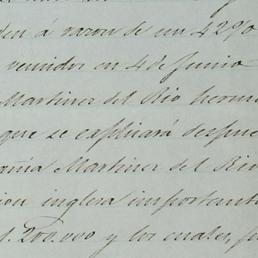 den á razon de un 42%
vencidos en 4 de Junio
Martinez del Rio herm
que se esplicará despue
añia Martinez del Rio
ion inglesa importante
1.200.000 y los cuales, p